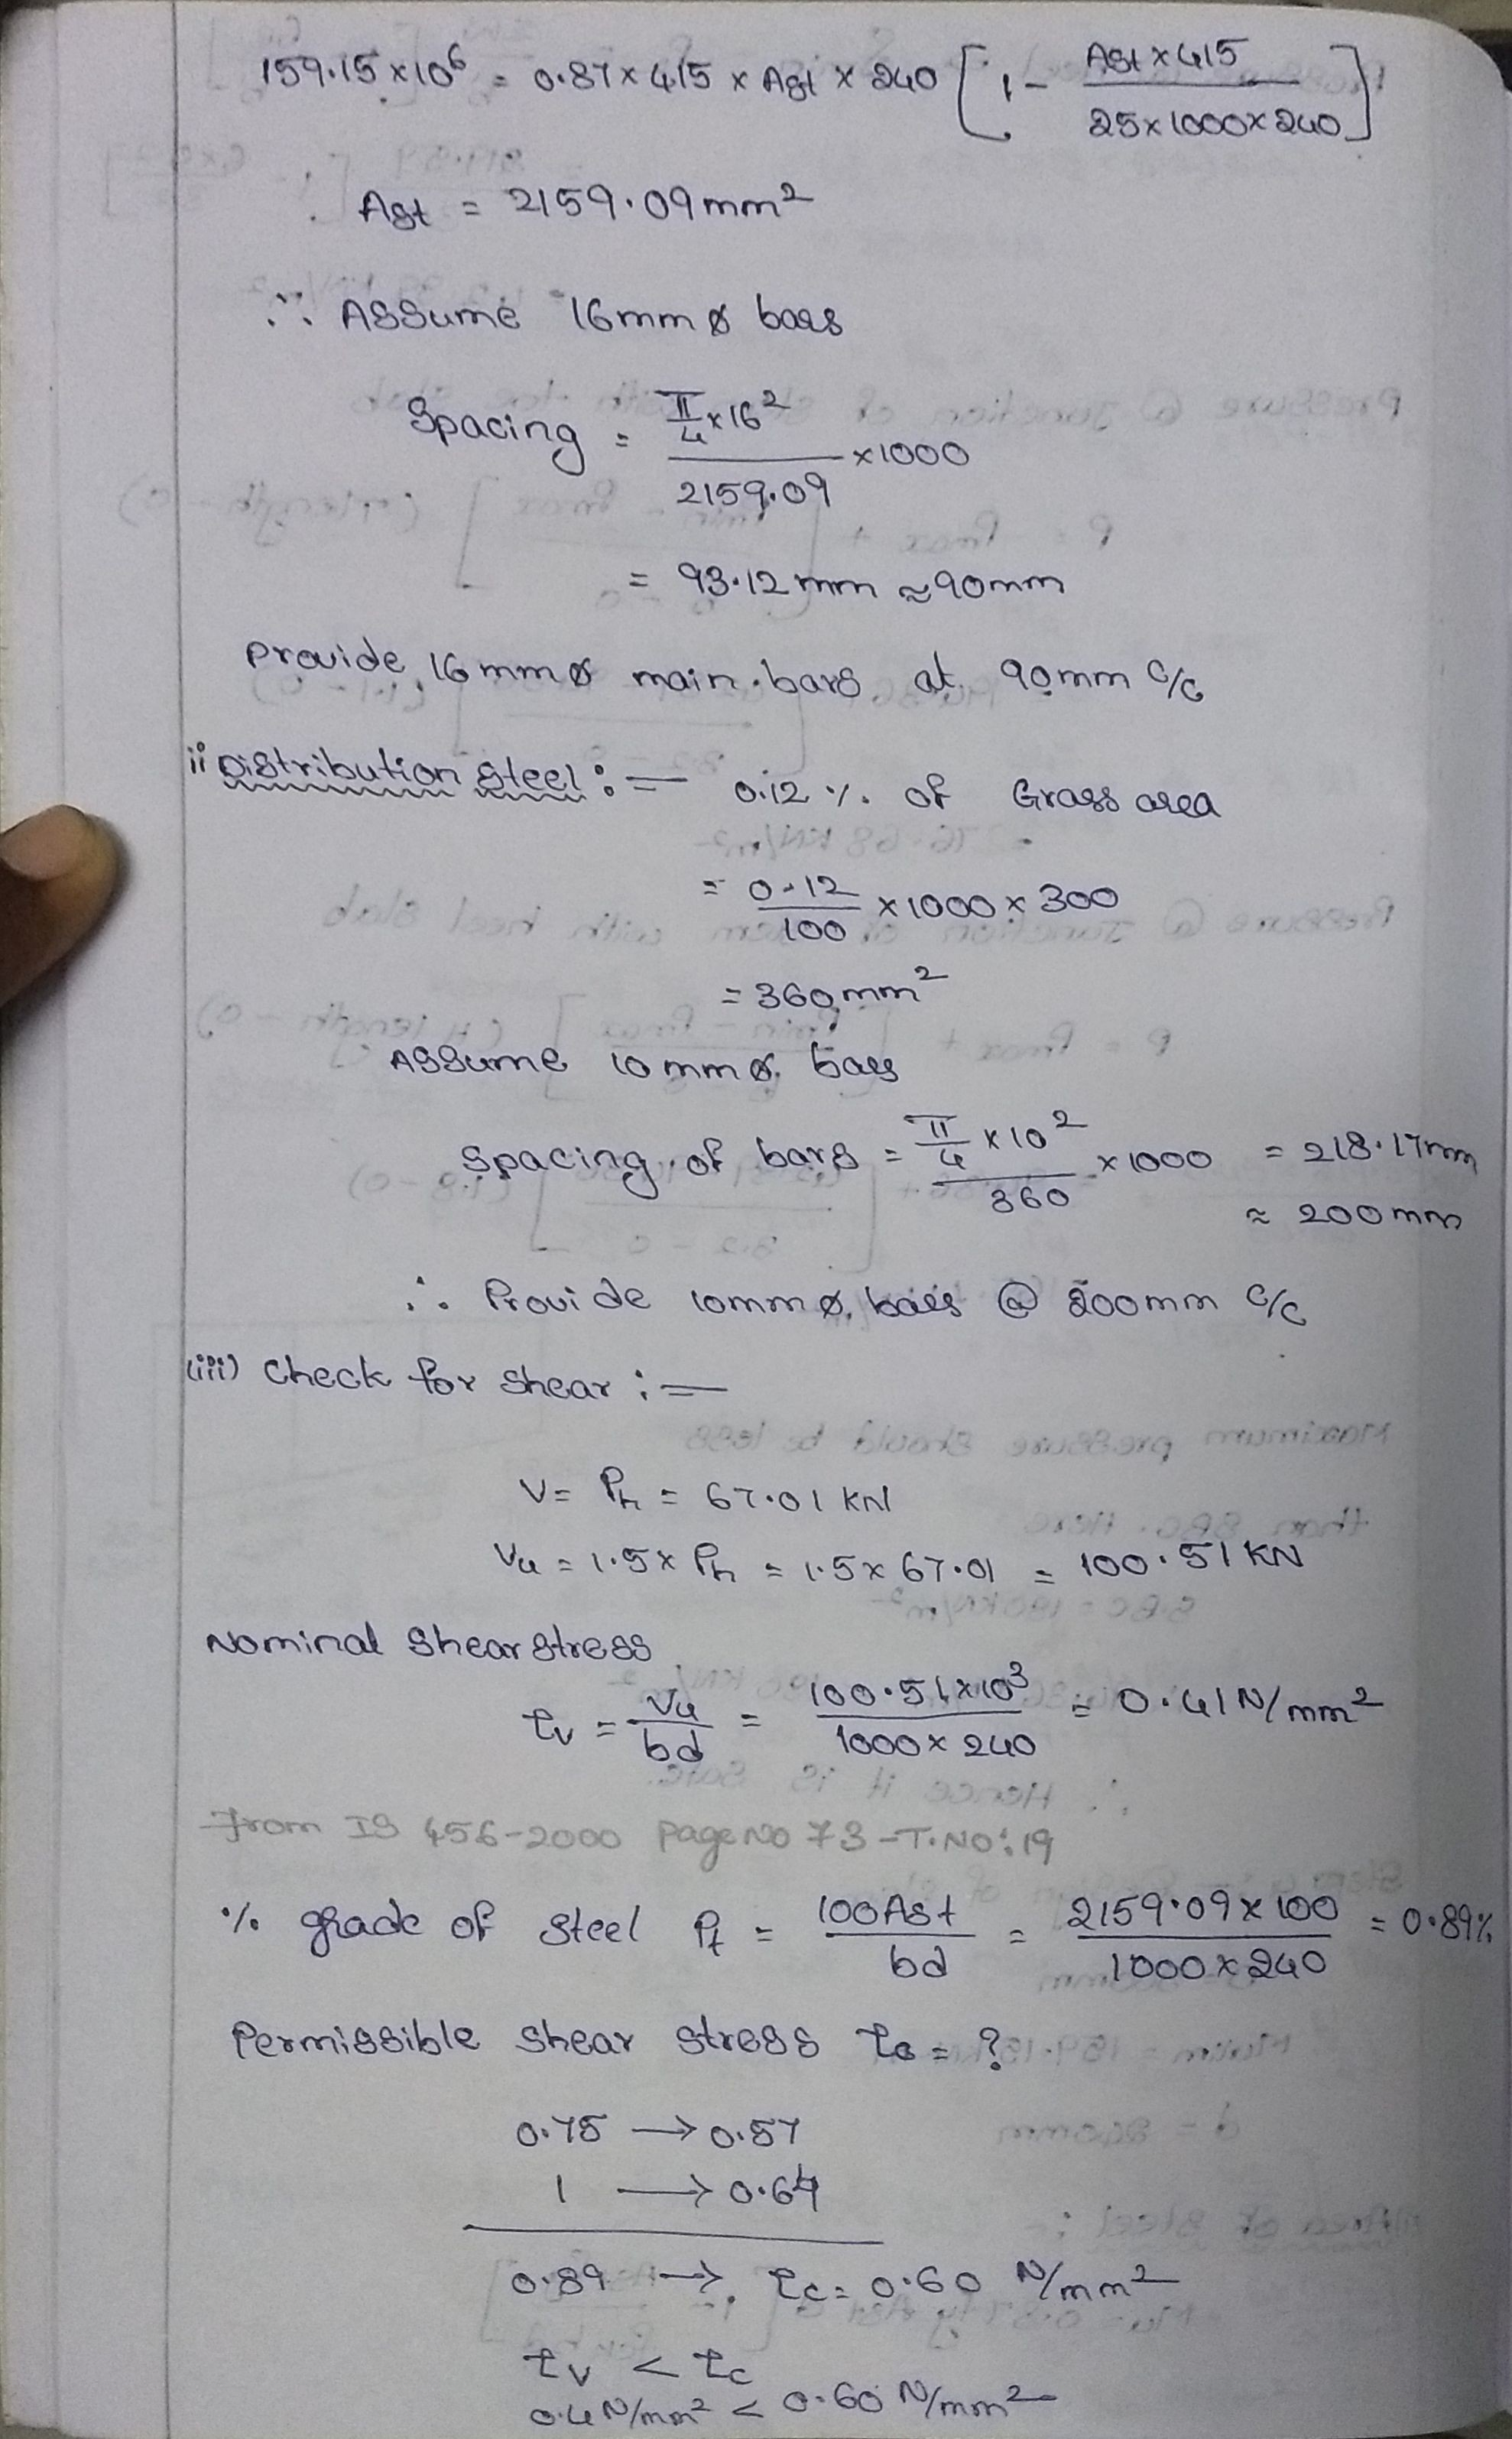 159.15×10⁶ = 0.87×415×Ast×240 [1- Ast×415 / 25×1000×240]
Ast = 2159.09mm²
∴ Assume 16mmø bars
Spacing = π/4×16² / 2159.09 ×1000
= 93.12mm ≈90mm
Provide 16mmø main bars at 90mm c/c
ii Distribution Steel:- 0.12 % of Grass area
= 0.12/100 ×1000×300
= 360mm²
Assume 10mmø bars
Spacing of bars = π/4×10² / 360 ×1000 = 218.17mm
≈ 200mm
∴ Provide 10mmø bars @ 200mm c/c
(iii) Check for Shear:-
V= Ph = 67.01 KN
Vu = 1.5× Ph = 1.5×67.01 = 100.51 KN
Nominal Shear Stress
τv = Vu/bd = 100.51×10³ / 1000×240 = 0.41N/mm²
From IS 456-2000 Page No 73 -T.NO:19
% grade of Steel Pt = 100Ast / bd = 2159.09×100 / 1000×240 = 0.89%
Permissible Shear Stress τc = ?
0.75 → 0.57
1 → 0.64
0.89 → τc= 0.60 N/mm²
τv < τc
0.4N/mm² < 0.60 N/mm²